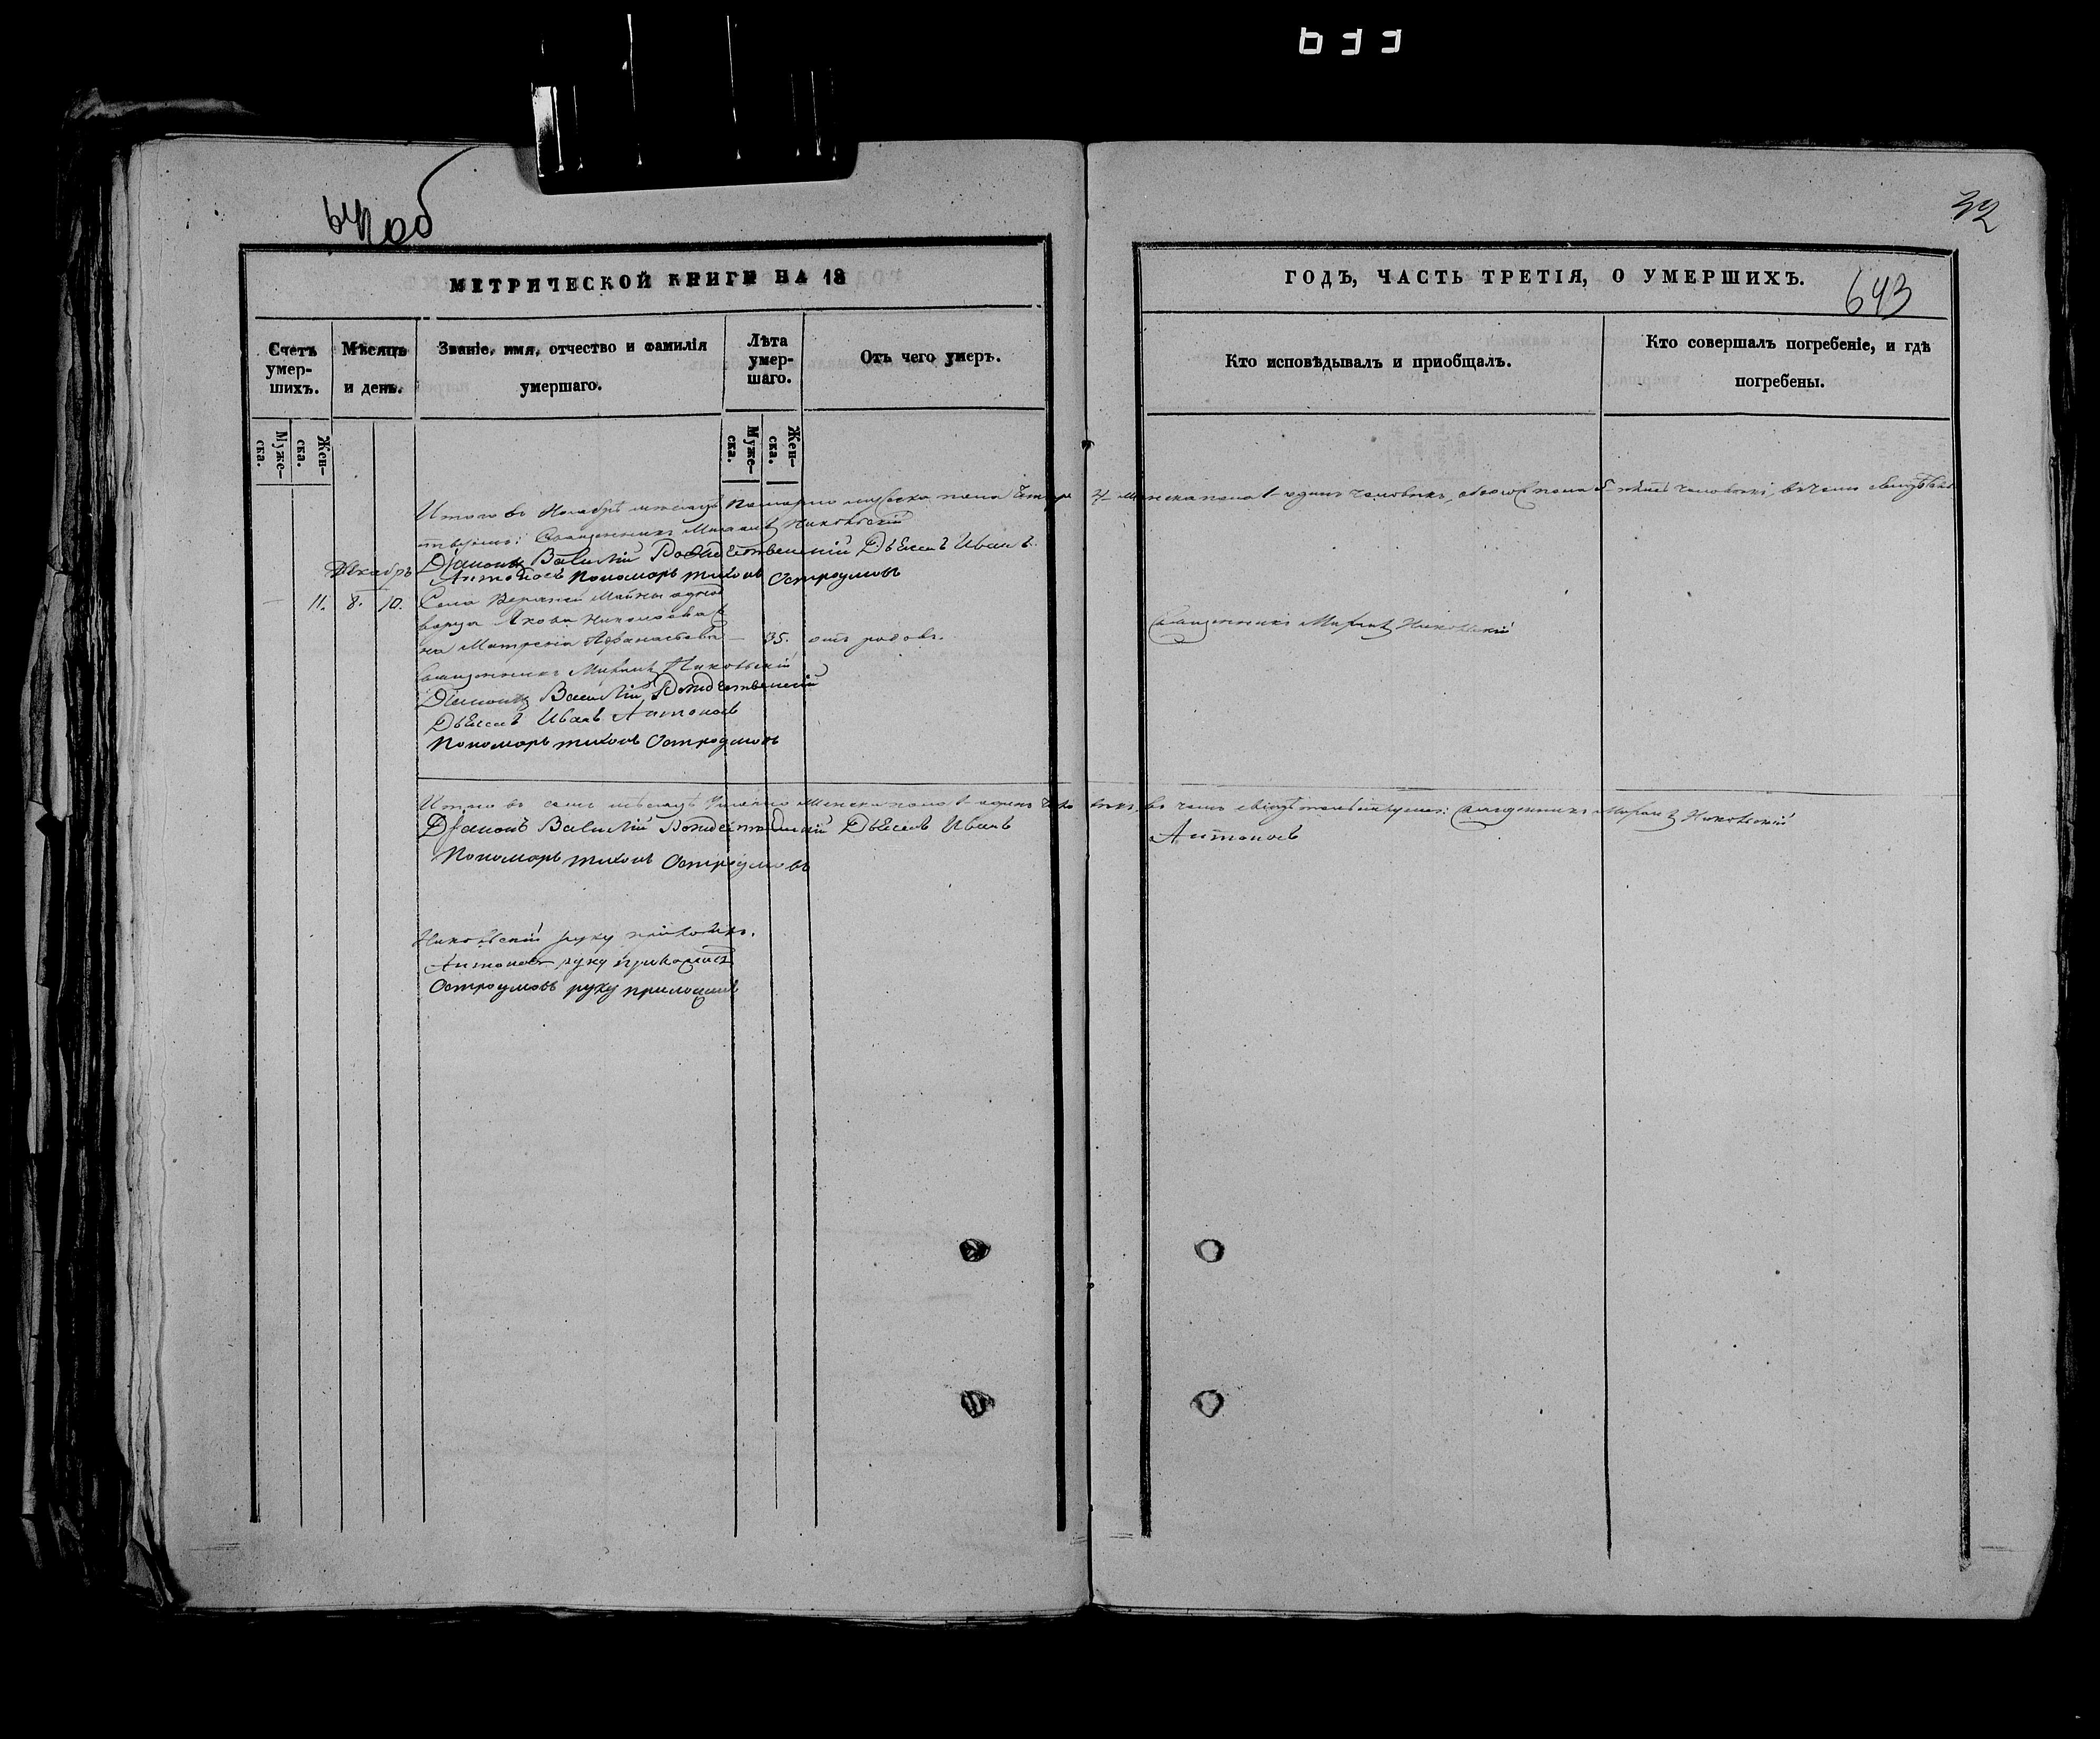 633
32
МЕТРИЧЕСКОЙ КНИГИ НА 18
ГОДЪ, ЧАСТЬ ТРЕТІЯ, О УМЕРШИХЪ.
643
Счетъ умер-шихъ.
Мѣсяцъ и день.
Званіе, имя, отчество и фамилія умершаго.
Лѣта умер-шаго.
Отъ чего умеръ.
Кто исповѣдывалъ и приобщалъ.
Кто совершалъ погребеніе, и гдѣ погребены.
Муже-ска.
Жен-ска.
Муже-ска.
Жен-ска.
Итого въ Ноябрѣ мѣсяцѣ померло мужеска пола четыре 4- женска пола 1- одинъ человѣкъ, обоего пола 5- человѣкъ, въ чемъ свидѣтель
ствуемъ: Священникъ Михаилъ Никольскій
Діаконъ Василій Рождественскій Дьячекъ Иванъ
Декабрь
Антоновъ Пономарь Тихонъ Остроумовъ
11. 8. 10. Села Верхней Майны одно
дворца Якова Николаева
на Матрена Афанасьева 35. отъ родовъ.
Священникъ Михаилъ Никольскій
Священникъ Михаилъ Никольскій
Діаконъ Василій Рождественскій
Дьячекъ Иванъ Антоновъ
Пономарь Тихонъ Остроумовъ
Итого въ семъ мѣсяцѣ женска пола 1- одинъ человѣкъ, въ чемъ свидѣтельствуемъ: Священникъ Михаилъ Никольскій
Діаконъ Василій Рождественскій Дьячекъ Иванъ Антоновъ
Пономарь Тихонъ Остроумовъ
Никольскій руку приложилъ.
Антоновъ руку приложилъ
Остроумовъ руку приложилъ